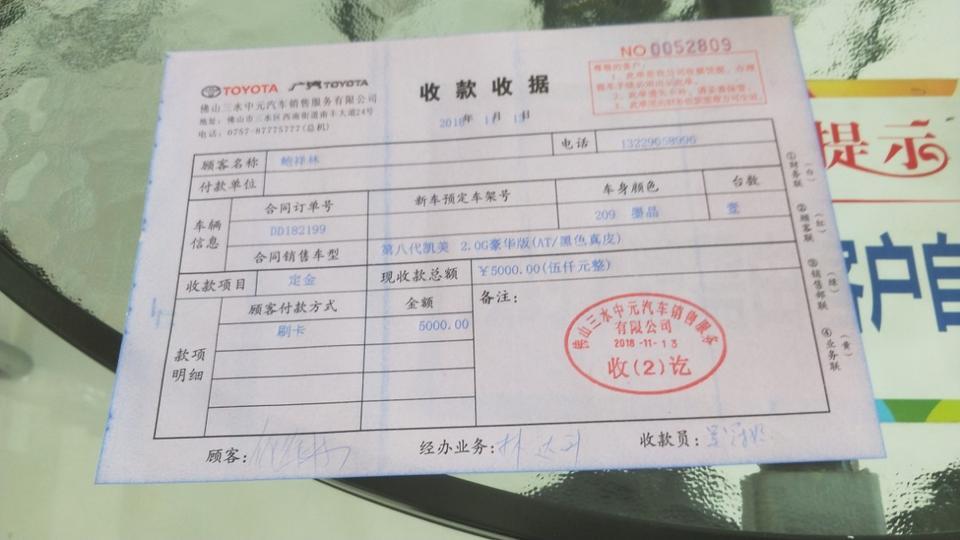 NO 0052809
TOYOTA 广汽TOYOTA
收款收据
佛山三水中元汽车销售服务有限公司
地址：佛山市三水区西南街道南丰大道24号
电话：0757-87775777(总机)
尊敬的客户：
2018年 11月 13日
顾客名称 鲍祥林 电话
付款单位
车辆信息 合同订单号 新车预定车架号 车身颜色 台数
DD182199 209 墨晶 壹
合同销售车型 第八代凯美 2.0G豪华版(AT/黑色真皮)
收款项目 定金 现收款总额 ￥5000.00(伍仟元整)
款项明细 顾客付款方式 金额 备注：
刷卡 5000.00
佛山三水中元汽车销售服务
有限公司
2018-11-13
收(2)讫
①财务联(白)
②顾客联(红)
③销售部联(绿)
④业务联(黄)
顾客： 经办业务： 收款员：
提示
客户自